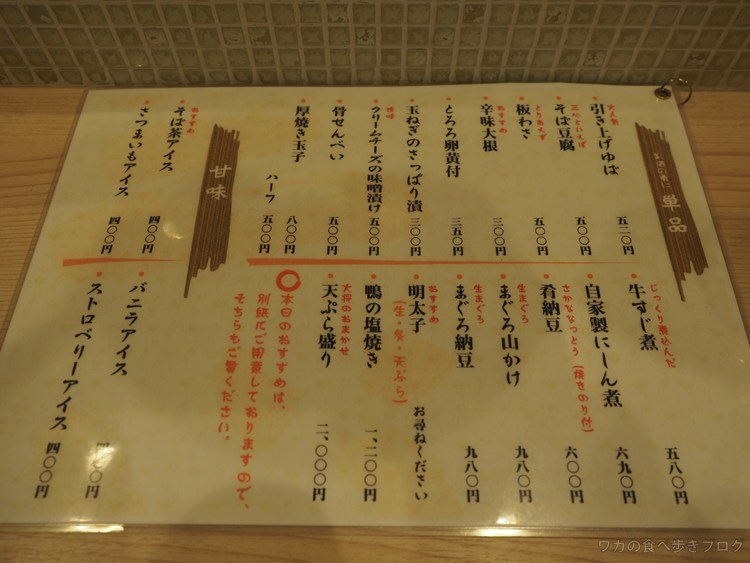 お酒の肴に 単品
大人気
引き上げゆば 五二〇円
蕎麦といえば
そば豆腐 五〇〇円
とりあえず
板わさ 五〇〇円
おすすめ
辛味大根 三〇〇円
とろろ卵黄付 三五〇円
玉ねぎのさっぱり漬 三〇〇円
クリームチーズの味噌漬け 五〇〇円
骨せんべい 五〇〇円
厚焼き玉子 八〇〇円
ハーフ 五〇〇円
じっくり煮込んだ
牛すじ煮 五八〇円
自家製にしん煮 六九〇円
さかななっとう(焼きのり付)
肴納豆 六〇〇円
生まぐろ
まぐろ山かけ 九八〇円
生まぐろ
まぐろ納豆 九八〇円
おすすめ
明太子 お尋ねください
(生・炙・天ぷら)
鴨の塩焼き 一、二〇〇円
大将のおまかせ
天ぷら盛り 二、〇〇〇円
〇本日のおすすめは、
別紙にご用意しておりますので、
そちらもご覧ください。
甘味
おすすめ
そば茶アイス 四〇〇円
さつまいもアイス 四〇〇円
バニラアイス 四〇〇円
ストロベリーアイス 四〇〇円
ワカの食べ歩きブログ